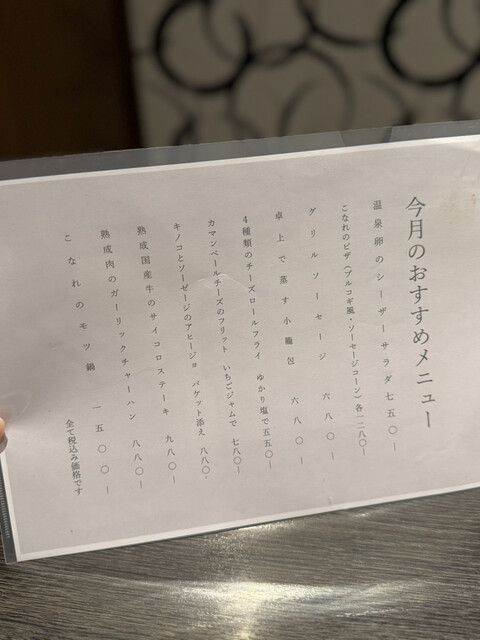 今月のおすすめメニュー
温泉卵のシーザーサラダ 七五〇ー
こなれのピザ(プルコギ風・ソーセージコーン)各一二八〇ー
グリルソーセージ 六八〇ー
卓上で蒸す小籠包 六八〇ー
4種類のチーズロールフライ ゆかり塩で 五五〇ー
カマンベールチーズのフリット いちごジャムで 七八〇ー
キノコとソーセージのアヒージョ バケット添え 八八〇-
熟成国産牛のサイコロステーキ 九八〇ー
熟成肉のガーリックチャーハン 八八〇ー
こなれのモツ鍋 一五〇〇ー
全て税込み価格です